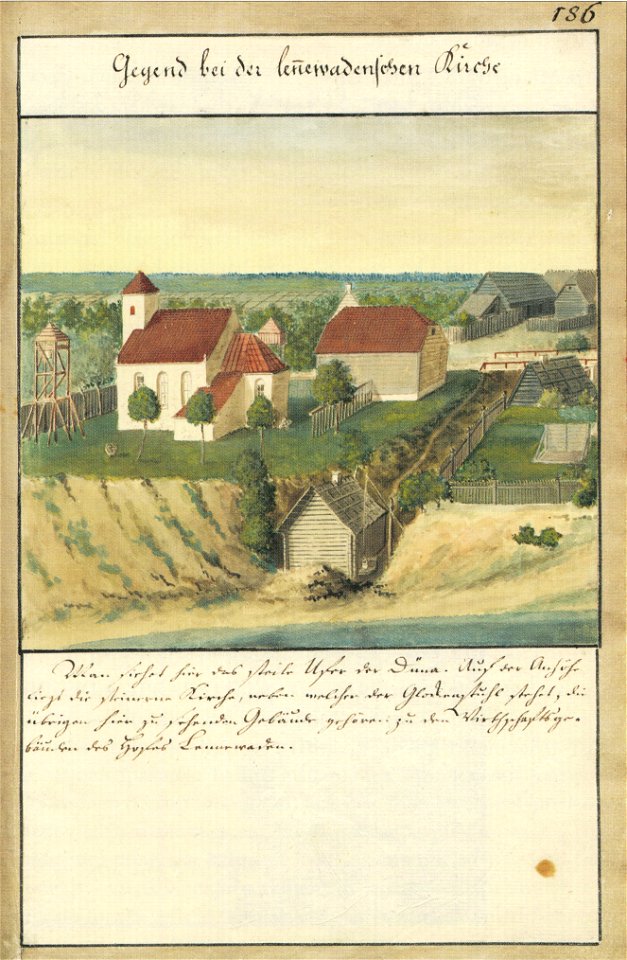 186
Gegend bei der leñewadenschen Kirche
Man siehet hier das steile Ufer der Düna. Auf der Anhöhe
liegt die steinerne Kirche, neben welcher der Glockenstuhl stehet, die
übrigen hier zu sehenden Gebäude gehören zu den Wirthschaftsge-
bäuden des Hofes Lennewaden.